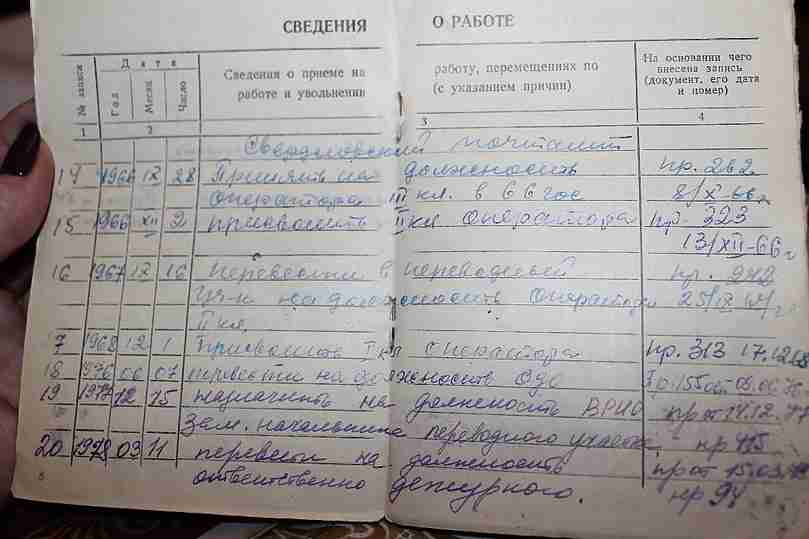 СВЕДЕНИЯ О РАБОТЕ
№ записи Дата Сведения о приеме на работу, перемещениях по На основании чего
Год Месяц Число работе и увольнении (с указанием причин) внесена запись
(документ, его дата
и номер)
1 2 3 4
Свердловский почтамт
14 1966 28 Принять на должность пр. 262
оператора III кл. в 66 гос 8/X-66г
15 1966 XII 2 присвоить II кл оператора пр. 323
13/XII-66г
16 1967 12 16 перевести в переводный пр.
уч-к на должность оператора
II кл.
7 1968 12 1 Присвоить I кл оператора пр. 313 17.12.68
18 1976 06 07 перевести на должность пр 155 от 08.06.76
19 1977 12 15 назначить на должность ВРИО пр от 14.12.77
Зам. начальника переводного участка, пр 415
20 1978 03 11 перевести на должность пр от 15.03.78
ответственно дежурного. пр 94
8